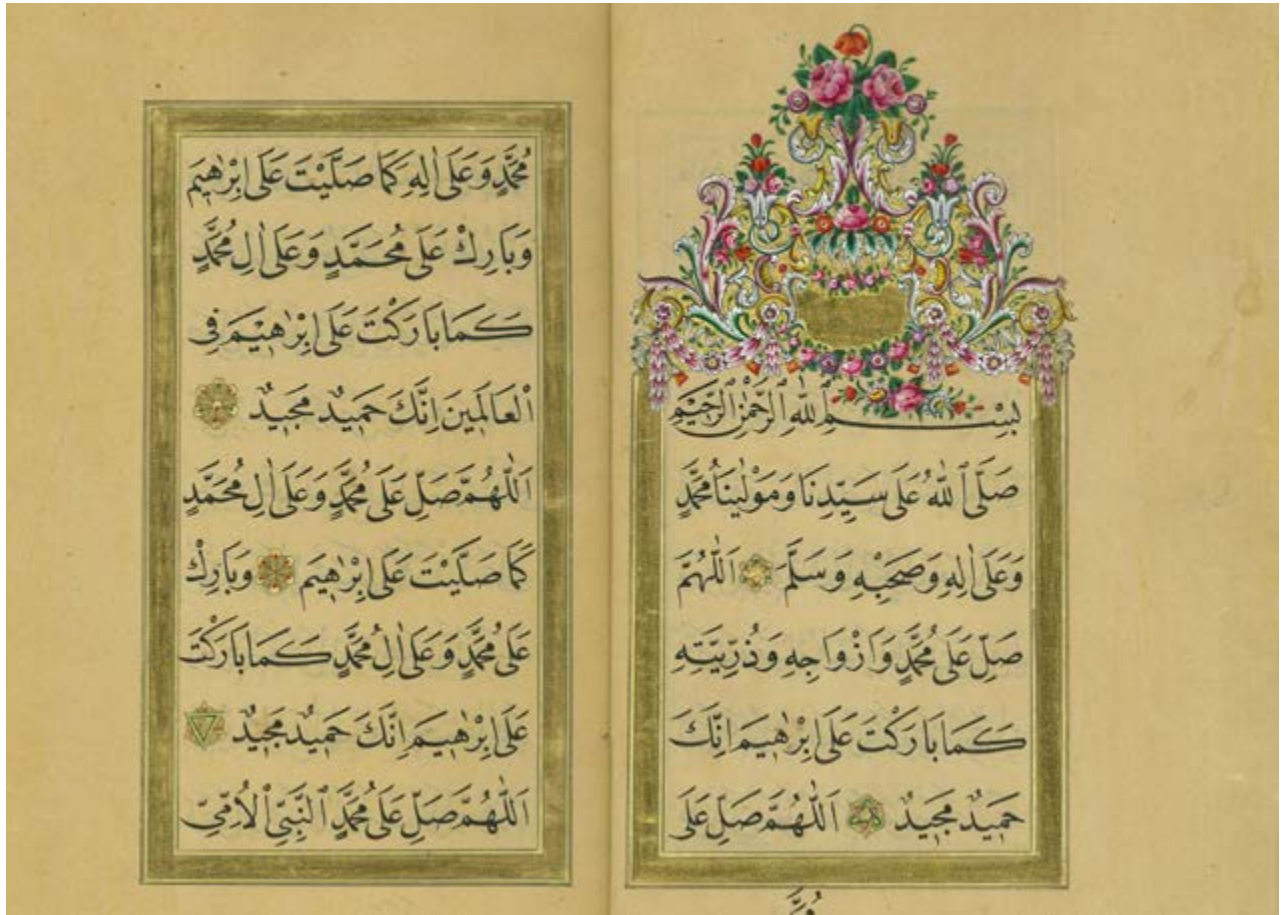 بِسْمِ ٱللّٰهِ ٱلرَّحْمٰنِ ٱلرَّحِيْمِ
صَلَّى ٱللّٰهُ عَلَى سَيِّدِنَا وَمَوْلٰينَا مُحَمَّدٍ
وَعَلَى اٰلِهِ وَصَحْبِهِ وَسَلَّمَ اَللّٰهُمَّ
صَلِّ عَلَى مُحَمَّدٍ وَاَزْوَاجِهِ وَذُرِّيَّتِهِ
كَمَا بَارَكْتَ عَلَى اِبْرٰهِيمَ اِنَّكَ
حَمِيدٌ مَجِيدٌ اَللّٰهُمَّ صَلِّ عَلَى
مُحَمَّدٍ وَعَلَى اٰلِهِ كَمَا صَلَّيْتَ عَلَى اِبْرٰهِيمَ
وَبَارِكْ عَلَى مُحَمَّدٍ وَعَلَى اٰلِ مُحَمَّدٍ
كَمَا بَارَكْتَ عَلَى اِبْرٰهِيمَ فِى
الْعَالَمِينَ اِنَّكَ حَمِيدٌ مَجِيدٌ
اَللّٰهُمَّ صَلِّ عَلَى مُحَمَّدٍ وَعَلَى اٰلِ مُحَمَّدٍ
كَمَا صَلَّيْتَ عَلَى اِبْرٰهِيمَ وَبَارِكْ
عَلَى مُحَمَّدٍ وَعَلَى اٰلِ مُحَمَّدٍ كَمَا بَارَكْتَ
عَلَى اِبْرٰهِيمَ اِنَّكَ حَمِيدٌ مَجِيدٌ
اَللّٰهُمَّ صَلِّ عَلَى مُحَمَّدٍ اَلنَّبِيِّ الْاُمِّيِّ